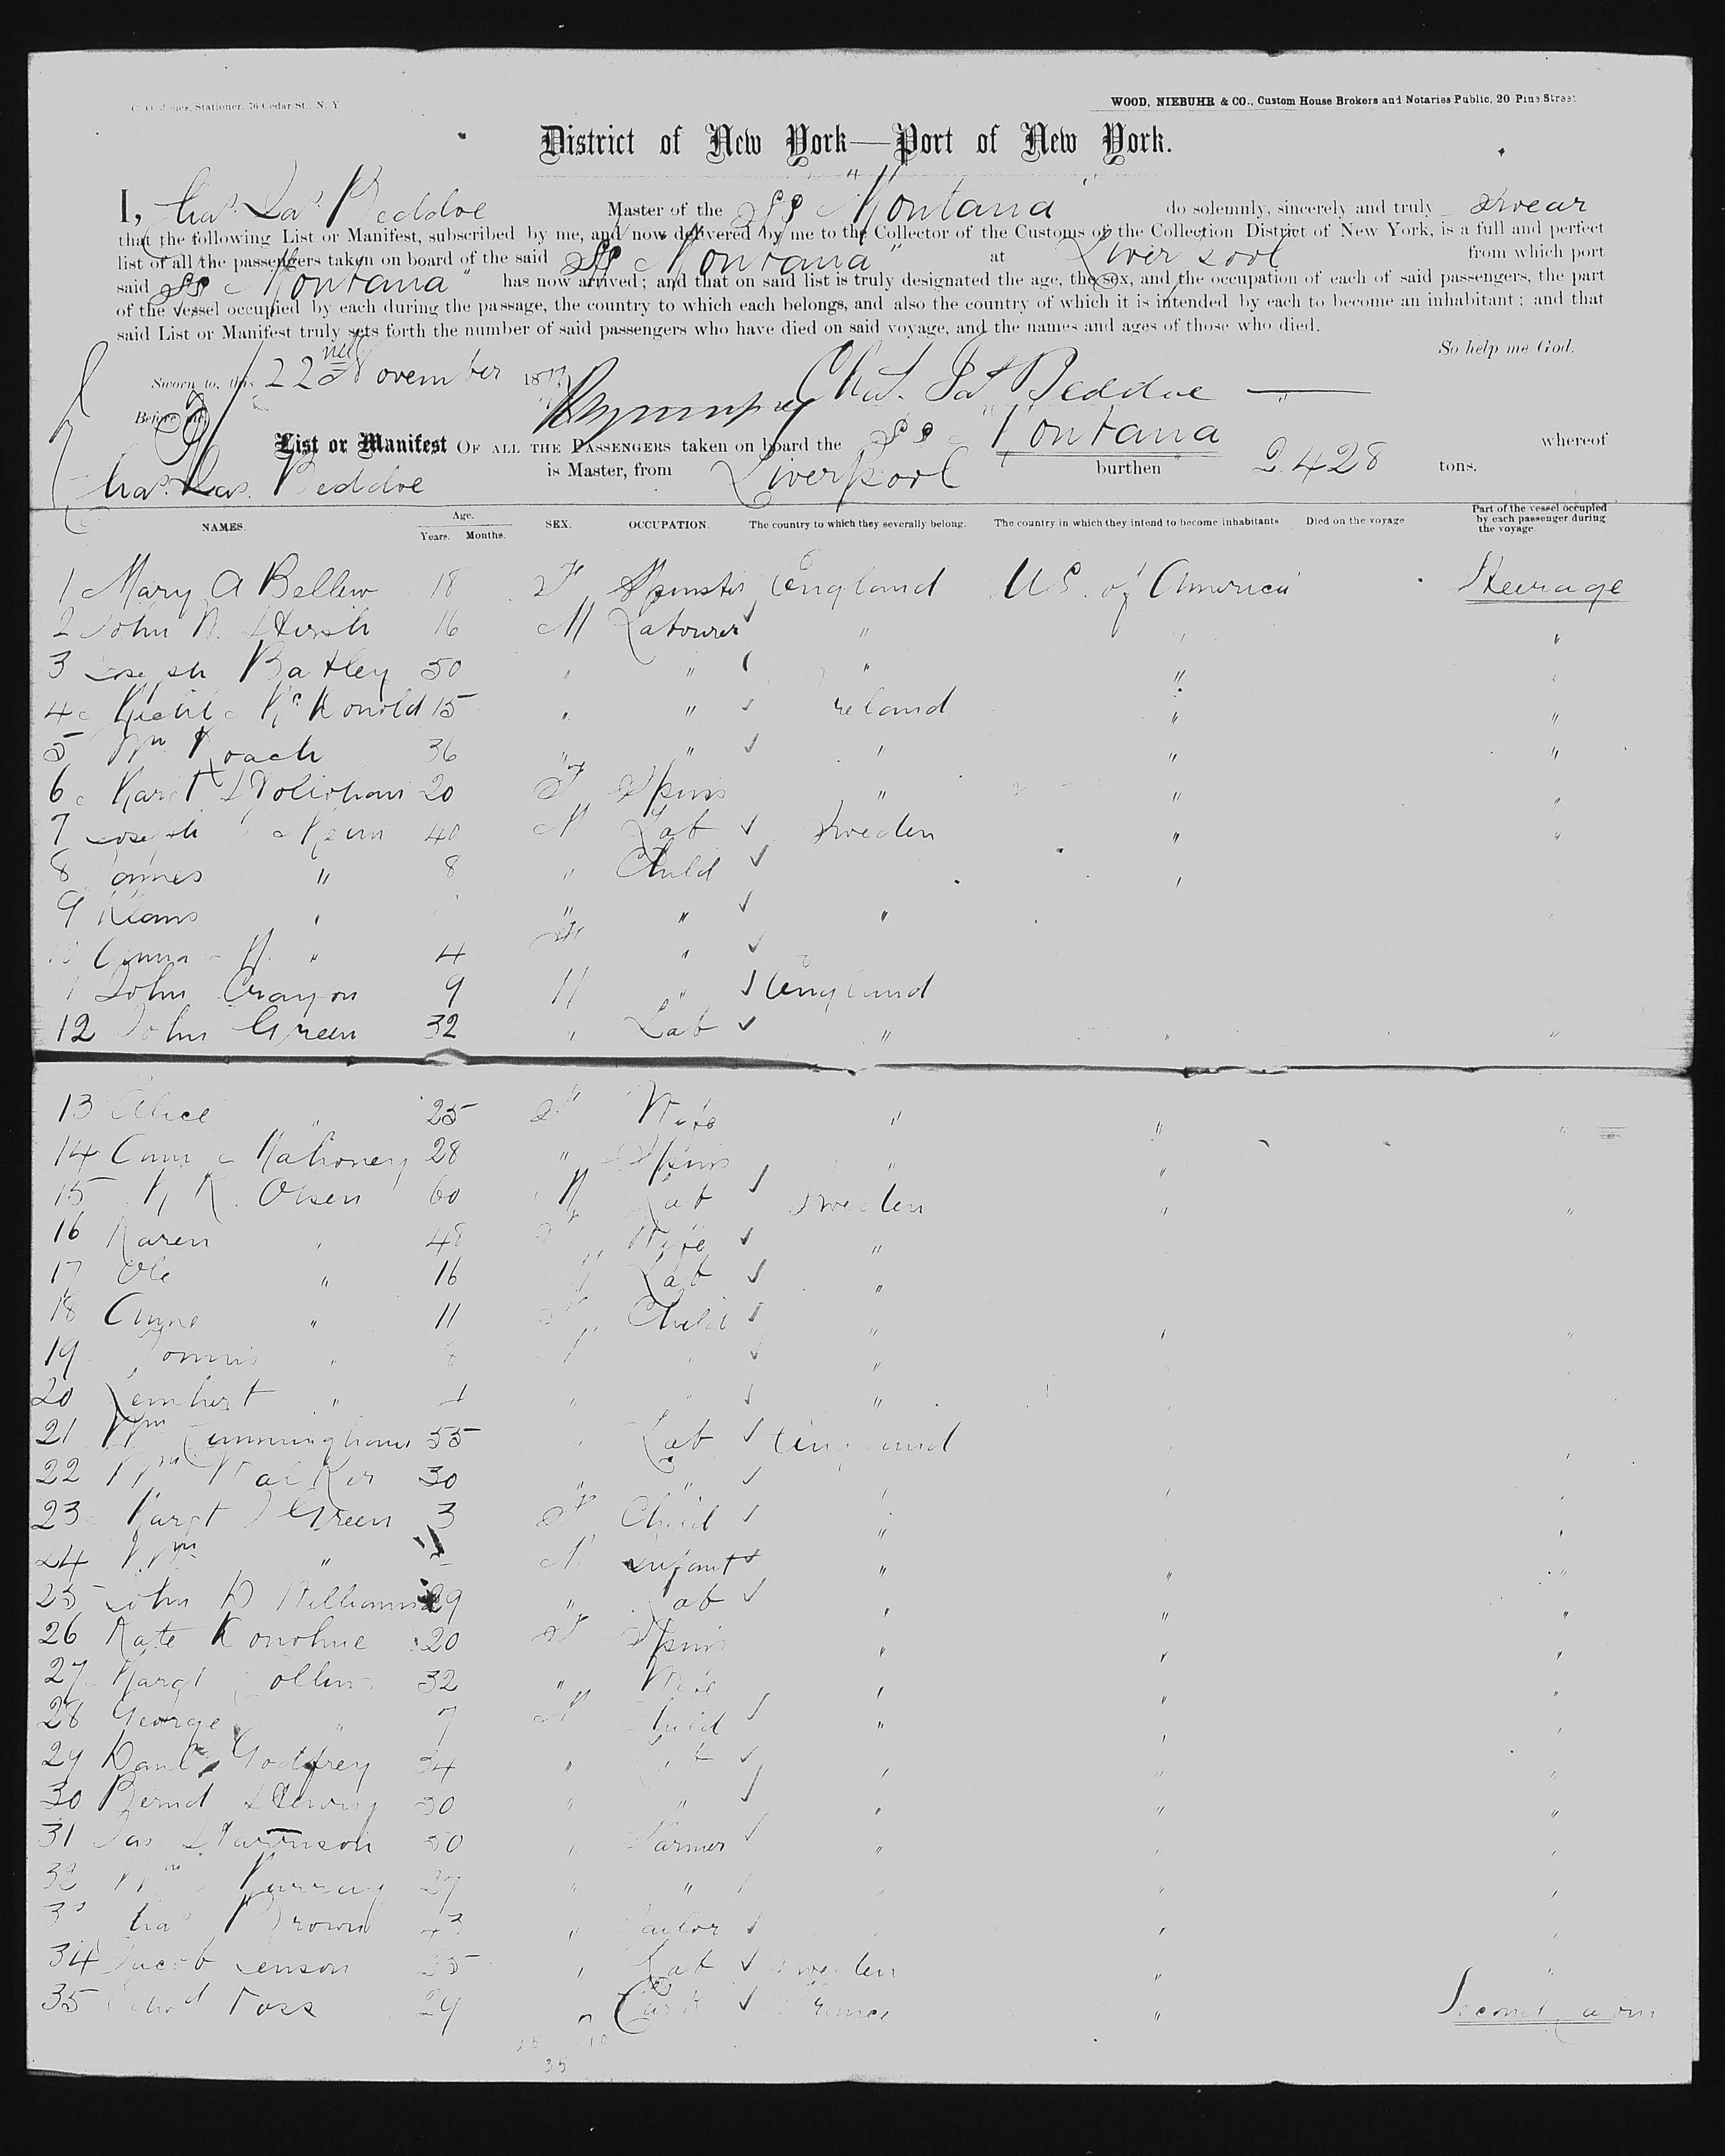 WOOD, NIEBUHR & CO., Custom House Brokers and Notaries Public, 20 Pine Street
C. O. Jones, Stationer, 76 Cedar St., N. Y
District of New York—Port of New York.
I, Chas. Jas. Beddoe Master of the SS "Montana" do solemnly, sincerely and truly swear
that the following List or Manifest, subscribed by me, and now delivered by me to the Collector of the Customs of the Collection District of New York, is a full and perfect
list of all the passengers taken on board of the said SS Montana" at Liverpool from which port
said SS Montana" has now arrived; and that on said list is truly designated the age, the sex, and the occupation of each of said passengers, the part
of the vessel occupied by each during the passage, the country to which each belongs, and also the country of which it is intended by each to become an inhabitant; and that
said List or Manifest truly sets forth the number of said passengers who have died on said voyage, and the names and ages of those who died.
So help me God.
Sworn to, this 22nd November 1877
Chas. Jas Beddoe
Before me,
List or Manifest OF ALL THE PASSENGERS taken on board the SS Montana whereof
Chas. Jas. Beddoe is Master, from Liverpool burthen 2.428 tons.
NAMES. Age. Years. Months. SEX. OCCUPATION. The country to which they severally belong. The country in which they intend to become inhabitants Died on the voyage Part of the vessel occupied by each passenger during the voyage.
1 Mary A Bellew 18 F Spinster England U.S. of America Steerage
2 John 16 M Labourer " " "
3 Joseph Batley 50 " " " "
4 15 " " Ireland " "
5 Wm Roach 36 " " " " "
6 Margt 20 F Spins " " "
7 Joseph 40 M Lab Sweden " "
8 " 8 " Child "
9 " " " "
10 " 4 F "
11 John Crayon 9 M " England
12 John Green 32 " Lab " " "
13 Alice " 25 F Wife " " "
14 Ann Mahoney 28 " Spins " "
15 Olsen 60 M Lab Sweden " "
16 Karen " 48 F Wife "
17 Ole " 16 M Lab "
18 " 11 F Child " " "
19 " M "
20 " " " "
21 Wm Cunningham 55 " Lab England
22 Wm Walker 30 " " " " "
23 Margt Green 3 F Child " "
24 Wm " M Infant " " "
25 John D Williams 29 " Lab " " "
26 Kate Donohue 20 F Spins " " "
27 Margt Collins 32 " Wife " " "
28 George " 7 M Child " " "
29 Danl Godfrey 34 " Lab " " "
30 30 " " " " "
31 Jas 50 " Farmer " " "
32 Wm Murray 27 " " " " "
33 Chas Brown 43 " Tailor " "
34 Jacob Jenson 25 " Lab Sweden " "
35 29 " France " Second Cabin
25 10
35